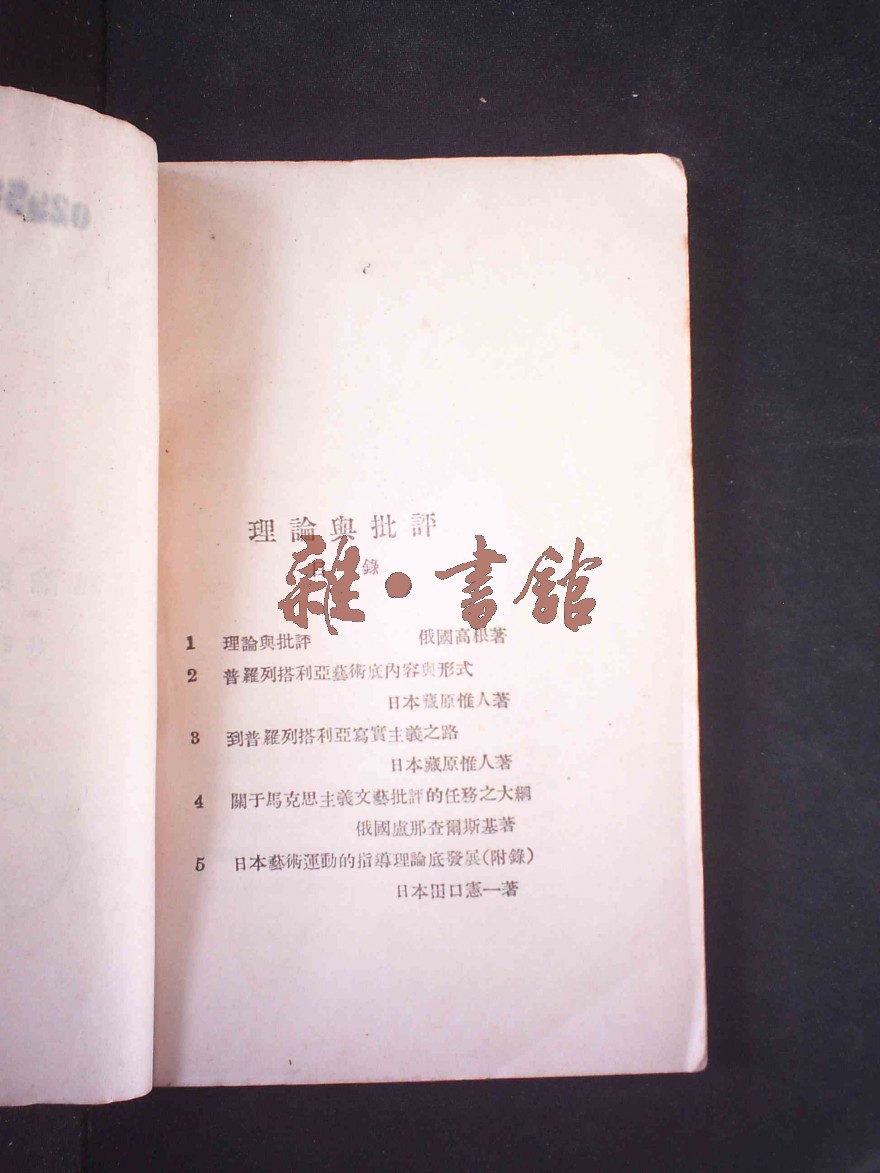 理論與批評
目錄
雜·書館
1 理論與批評 俄國高根著
2 普羅列搭利亞藝術底內容與形式
日本藏原惟人著
3 到普羅列搭利亞寫實主義之路
日本藏原惟人著
4 關于馬克思主義文藝批評的任務之大綱
俄國盧那查爾斯基著
5 日本藝術運動的指導理論底發展(附錄)
日本田口憲一著